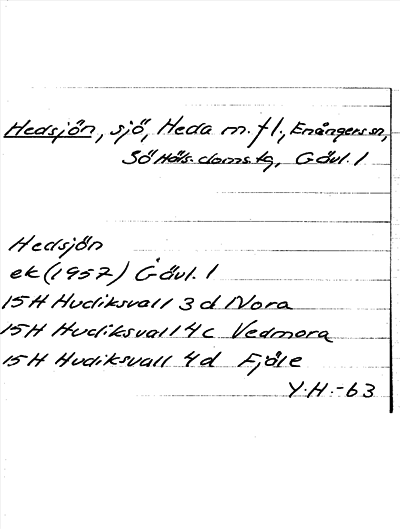 Hedsjön, sjö, Heda m.fl., Enångers sn,
Sö Häls. doms.tg, Gävl. l
Hedsjön
ek (1957) Gävl. l
15H Hudiksvall 3d Nora
15H Hudiksvall 4c Vedmora
15H Hudiksvall 4d Fjåle
Y.H.-63